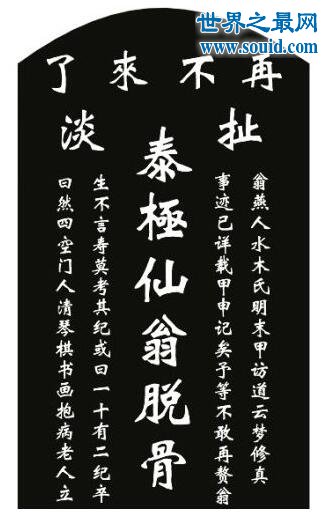 世界之最网
www.souid.com
再不來了
扯淡
泰極仙翁脱骨
翁燕人水木氏明末甲访道云梦修真
事迹已详载甲申记矣予等不敢再赘翁
生不言寿莫考其纪或曰一十有二纪卒
曰然四空门人清琴棋书画抱病老人立